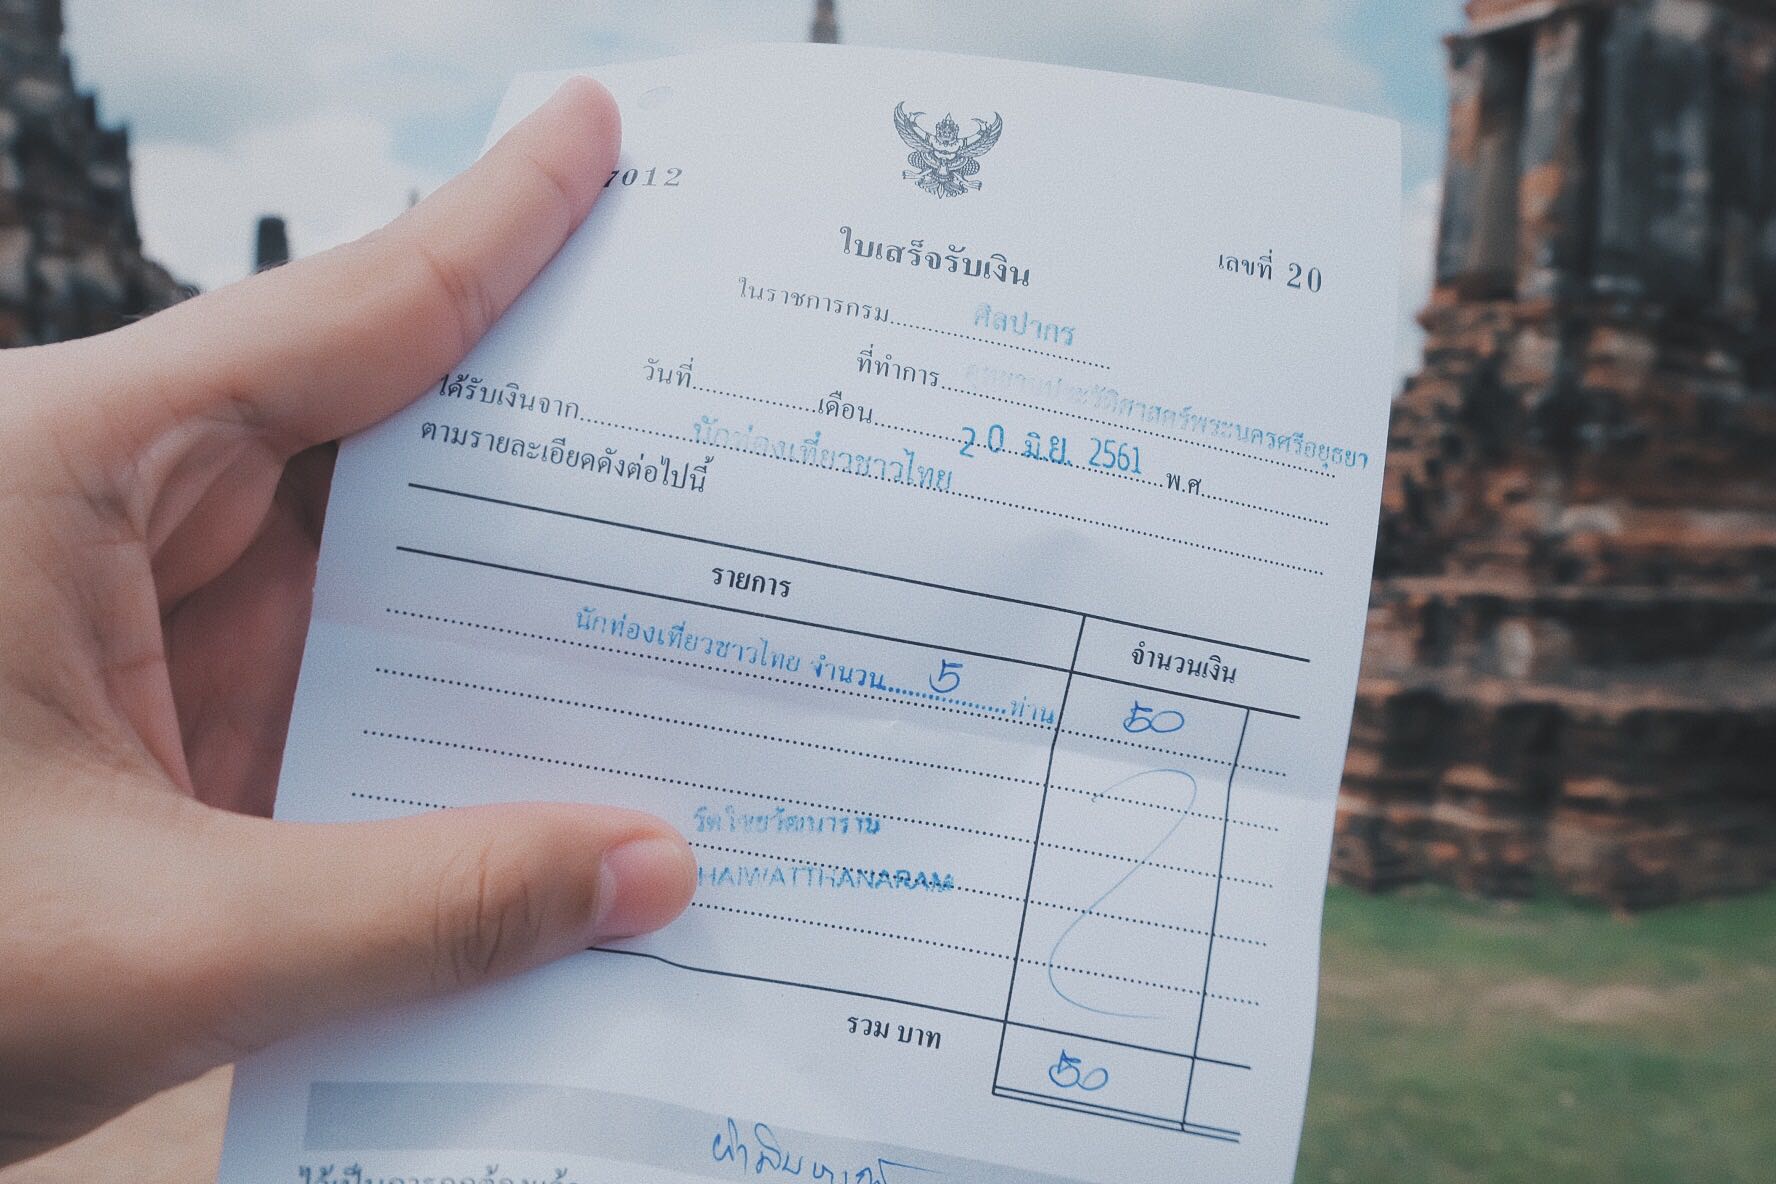 7012
ใบเสร็จรับเงิน
เลขที่ 20
ในราชการกรม ศิลปากร
ที่ทำการ อุทยานประวัติศาสตร์พระนครศรีอยุธยา
วันที่ เดือน 20 มิ.ย. 2561 พ.ศ.
ได้รับเงินจาก นักท่องเที่ยวชาวไทย
ตามรายละเอียดดังต่อไปนี้
รายการ จำนวนเงิน
นักท่องเที่ยวชาวไทย จำนวน 5 ท่าน 50
วัดไชยวัฒนาราม
HAIWATTHANARAM
รวม บาท 50
ห้าสิบบาท